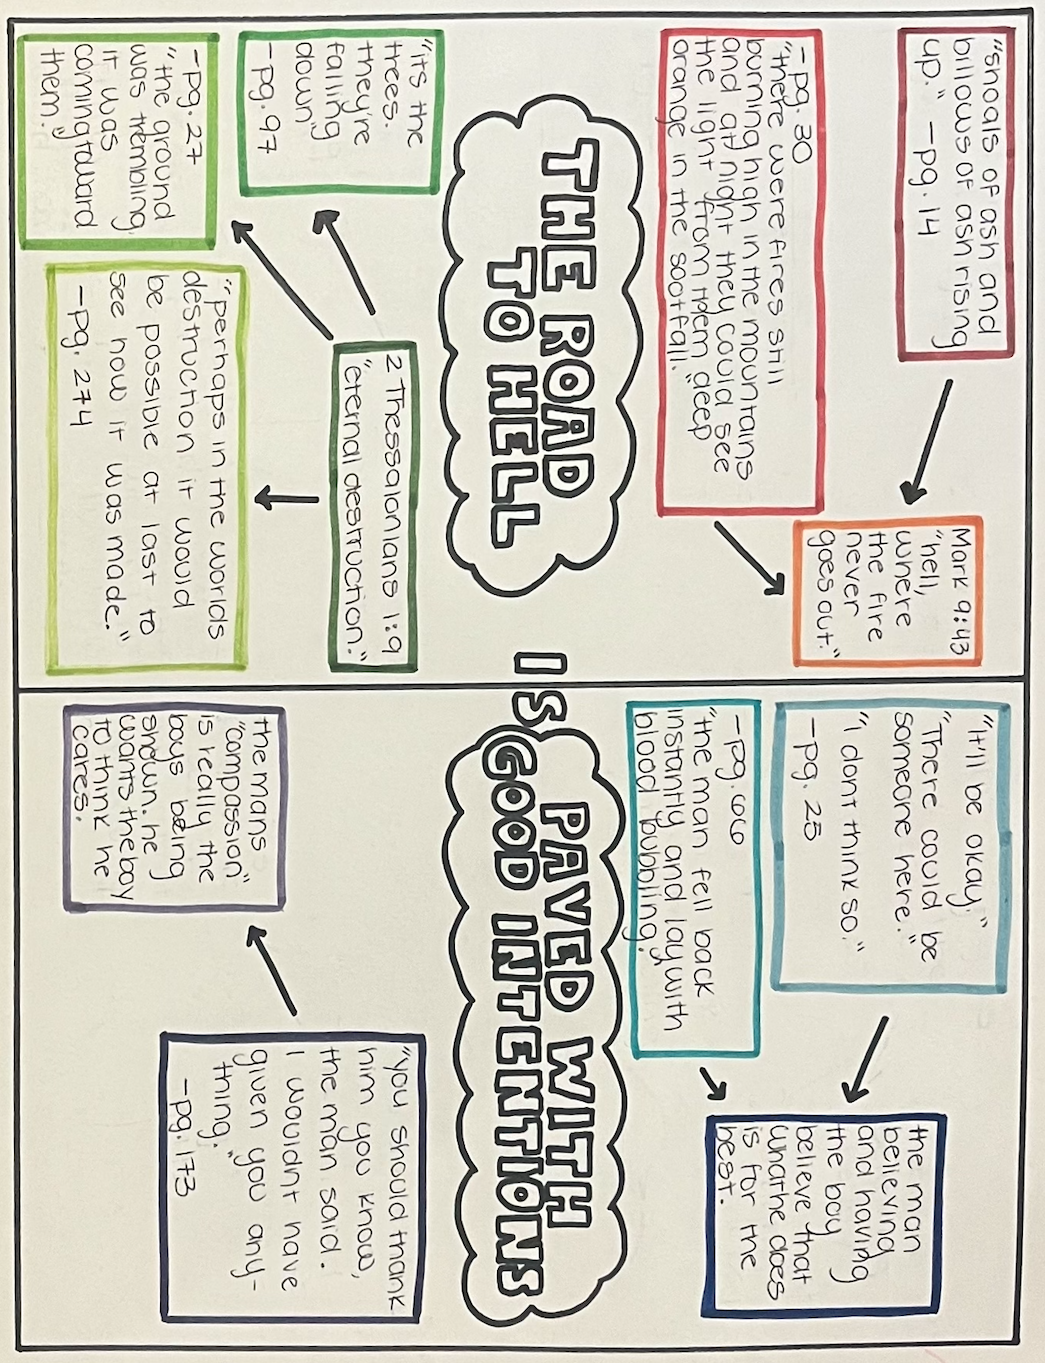 "shoals of ash and
billows of ash rising
up." -pg. 14
Mark 9:43
"hell,
where
the fire
never
goes out."
-pg. 30
"there were fires still
burning high in the mountains
and at night they could see
the light from them deep
orange in the sootfall."
THE ROAD
TO HELL
"its the
trees.
they're
falling
down"
-pg. 97
2 Thessalonians 1:9
"eternal destruction."
-pg. 27
"the ground
was trembling.
it was
coming toward
them."
"perhaps in the worlds
destruction it would
be possible at last to
see how it was made."
-pg. 274
IS
"It'll be okay."
"There could be
someone here."
"I dont think so."
-pg. 25
the man
believing
and having
the boy
believe that
what he does
is for the
best.
-pg. 66
"the man fell back
instantly and lay with
blood bubbling."
PAVED WITH
GOOD INTENTIONS
"you should thank
him you know,
the man said.
I wouldnt have
given you any-
thing."
-pg. 173
the mans
"compassion"
is really the
boys being
shown. he
wants the boy
to think he
cares.